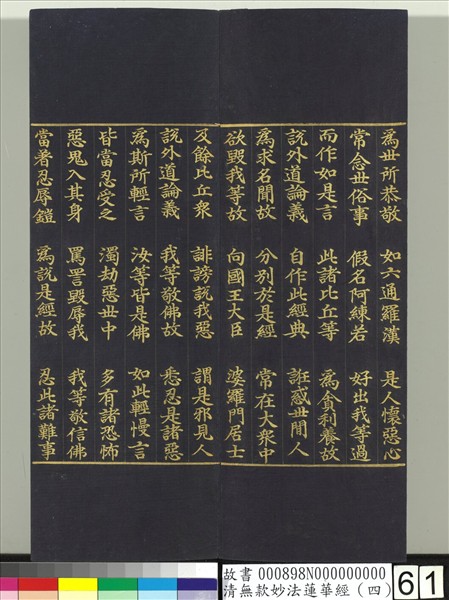 為世所恭敬 如六通羅漢 是人懷惡心
常念世俗事 假名阿練若 好出我等過
而作如是言 此諸比丘等 為貪利養故
說外道論義 自作此經典 誑惑世間人
為求名聞故 分別於是經 常在大眾中
欲毀我等故 向國王大臣 婆羅門居士
及餘比丘眾 誹謗說我惡 謂是邪見人
說外道論義 我等敬佛故 悉忍是諸惡
為斯所輕言 汝等皆是佛 如此輕慢言
皆當忍受之 濁劫惡世中 多有諸恐怖
惡鬼入其身 罵詈毀辱我 我等敬信佛
當著忍辱鎧 為說是經故 忍此諸難事
故書 000898N000000000
清無款妙法蓮華經(四)
61